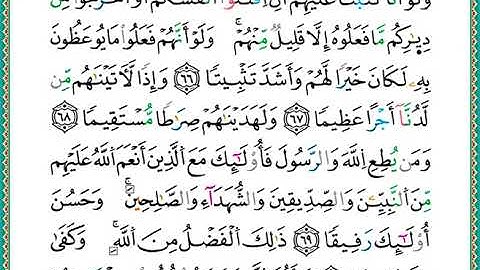 وَلَوْ أَنَّا كَتَبْنَا عَلَيْهِمْ أَنِ اقْتُلُوٓا۟ أَنفُسَكُمْ أَوِ اخْرُجُوا۟ مِن
دِيَـٰرِكُم مَّا فَعَلُوهُ إِلَّا قَلِيلٌ مِّنْهُمْ ۖ وَلَوْ أَنَّهُمْ فَعَلُوا۟ مَا يُوعَظُونَ
بِهِۦ لَكَانَ خَيْرًا لَّهُمْ وَأَشَدَّ تَثْبِيتًا ٦٦ وَإِذًا لَّـَٔاتَيْنَـٰهُم مِّن
لَّدُنَّآ أَجْرًا عَظِيمًا ٦٧ وَلَهَدَيْنَـٰهُمْ صِرَٰطًا مُّسْتَقِيمًا ٦٨
وَمَن يُطِعِ اللَّهَ وَالرَّسُولَ فَأُو۟لَـٰٓئِكَ مَعَ الَّذِينَ أَنْعَمَ اللَّهُ عَلَيْهِم
مِّنَ النَّبِيِّـۧنَ وَالصِّدِّيقِينَ وَالشُّهَدَآءِ وَالصَّـٰلِحِينَ ۚ وَحَسُنَ
أُو۟لَـٰٓئِكَ رَفِيقًا ٦٩ ذَٰلِكَ الْفَضْلُ مِنَ اللَّهِ ۚ وَكَفَىٰ